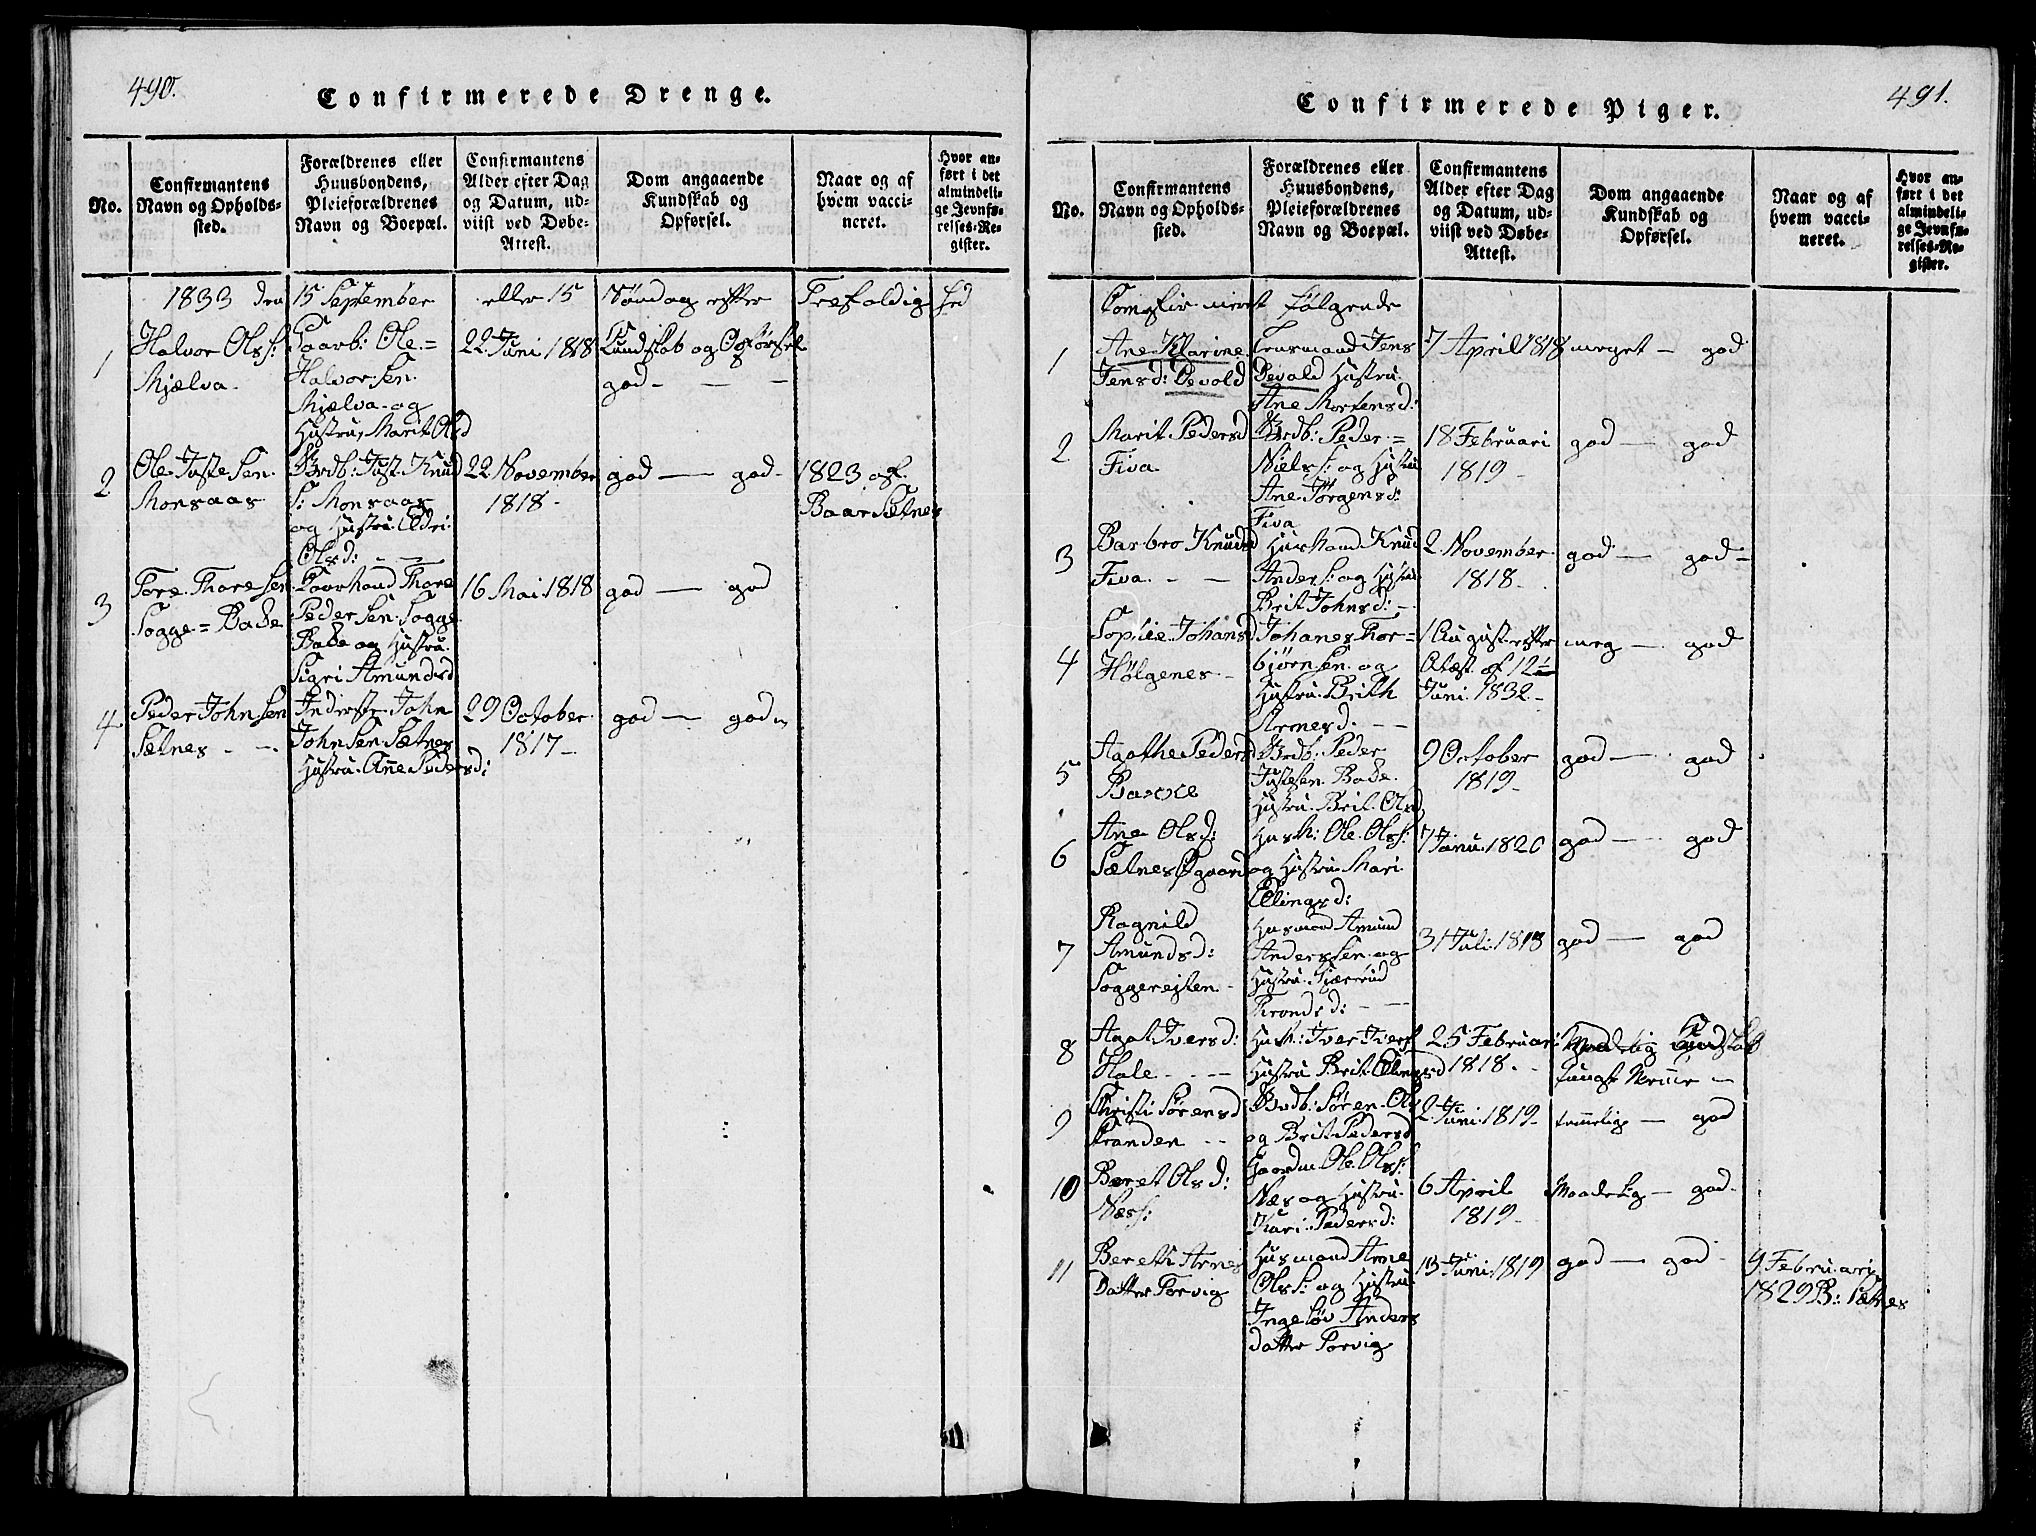 490.
Confirmerede Drenge.
No.
Confirmantens
Navn og Opholds-
sted.
Forældrenes eller
Huusbondens,
Pleieforældrenes
Navn og Boepæl.
Confirmantens
Alder efter Dag
og Datum, ud-
viist ved Døbe-
Attest.
Dom angaaende
Kundskab og
Opførsel.
Naar og af
hvem vacci-
neret.
Hvor an-
ført i det
almindeli-
ge Jevnfø-
relses-Re-
gister.
1833 den 15 September eller 15 Søndag efter Trefoldighed
1
Halvor Olss:
Mjælva
Gaarb: Ole =
Halvorsen
Mjælva og
Hustru, Marit Olsd
22 Juni 1818
Kundskab og Opførsel
god - - -
2
Ole Justesen
Monsaas
Brdb: Just Knud
S: Monsaas
og Hustru Eldri
Olsd: - -
22 November
1818 -
god - god -
1823 af
Baar Sætnes
3
Tore Thoresen
Sogge = Bade
Gaarmand Thore
Pedersen Sogge
Bade og Hustru
Sigri Amundsd
16 Mai 1818
god - god
4
Peder Johnsen
Sætnes - -
Inderste John
Johnsen Sætnes
Hustru Ane Pedersd:
29 October
1817 -
god - god
491.
Confirmerede Piger.
No.
Confirmantens
Navn og Opholds-
sted.
Forældrenes eller
Huusbondens,
Pleieforældrenes
Navn og Boepæl.
Confirmantens
Alder efter Dag
og Datum, ud-
viist ved Døbe-
Attest.
Dom angaaende
Kundskab og
Opførsel.
Naar og af
hvem vacci-
neret.
Hvor an-
ført i det
almindeli-
ge Jevnfø-
relses-Re-
gister.
følgende
1
Ane Marine
Jensd: Devold
Lensmand Jens
Devold Hustru
Ane Mortensd:
7 April 1818
meget - god
2
Marit Pedersd
Fiva
Brdb: Peder =
Niels S: og Hustru
Ane Jörgensd:
Fiva
18 Februari
1819 -
god - god
3
Barbro Knudsd
Fiva - -
Husmand Knud
Anders S: og Hustru
Brit Johnsd: -
2 November
1818 -
god - god -
4
Sophie Johansd
Hölgenes -
Johanes Thor =
bjørnsen og
Hustru Brith
Arnesd: - -
1 August efter
Atest af 12te
Juni 1832 -
meg - god
5
Agathe Pedersd
Brdb: Peder
Justesen Bade
Hustru Brit Olsd
9 October
1819 -
god - god
6
Ane Olsd:
Sætnes Øgaard
Husm: Ole Olss:
og Hustru Mari
Ellingsd:
7 Janu: 1820
god - god
7
Ragnild
Amundsd:
Soggerejten -
Husmand Amund
Anderssen og
Hustru Gjærtrud
Trondsd: - -
31 Juli 1818
god - god
8
Agat Iversd:
Hole - - -
Husm: Iver Iverss
Hustru Brit Ellingsd
25 Februari
1818. -
Maadelig Kundskab
9
Christi Sörensd
Stranden - -
Brdb: Sören Ols
og Brit Pedersd
2 Juni 1819 -
temelig - god
10
Beret Olsd:
Næss:
Gaardm Ole Olss:
Næs og Hustru
Kari Pedersd:
6 April
1819 -
Maadelig - god -
11
Bereth Arnes
Datter Torvig
Husmand Arne
Olss: og Hustru
Ingeløv Anders
datter Torvig
13 Juni 1819
god - god -
9 Februari
1829 B: Sætnes